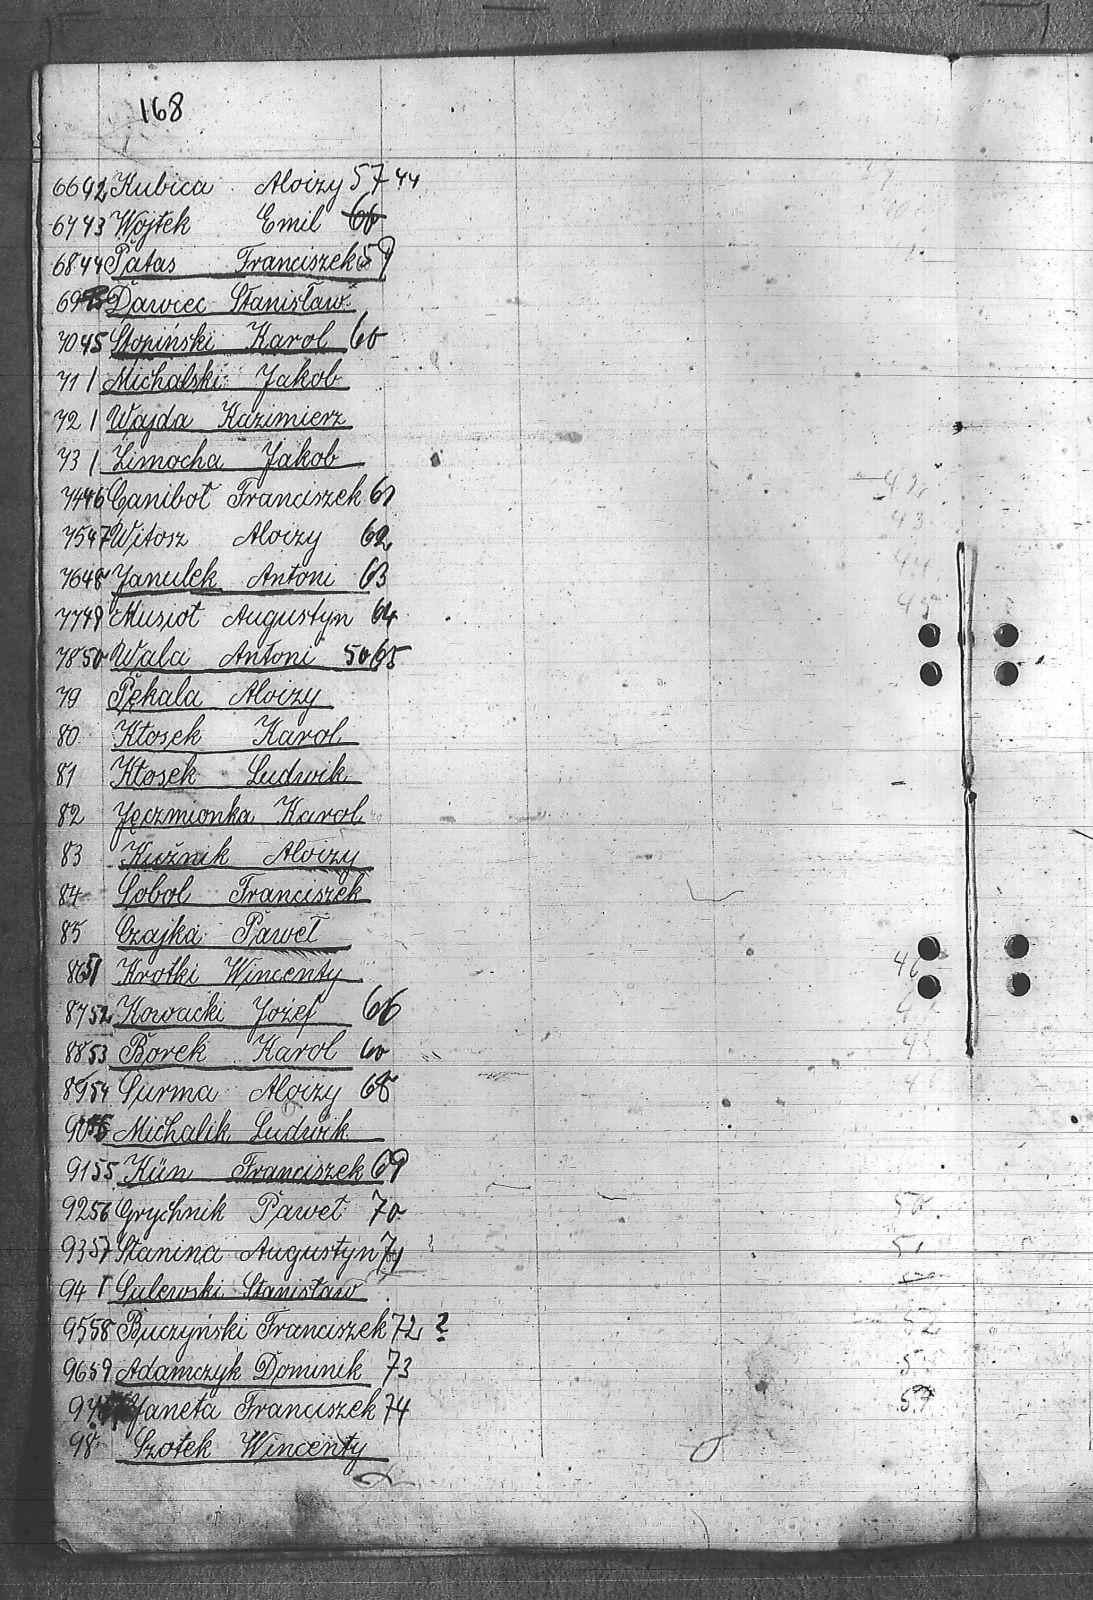 168
66 42 Kubica Aloizy 57 44
67 43 Wojtek Emil
68 44 Patas Franciszek 59
69 Dawiec Stanisław
70 45 Stopiński Karol 60
71 1 Michalski Jakob
72 1 Wajda Kazimierz
73 1 Zimocha Jakob
74 46 Ganibot Franciszek 61
75 47 Witosz Aloizy 62
76 48 Janulek Antoni 63
77 49 Musiot Augustyn 64
78 50 Wala Antoni 50 65
79 Pękala Aloizy
80 Kłosek Karol
81 Kłosek Ludwik
82 Jęczmionka Karol
83 Kuźnik Aloizy
84 Sobol Franciszek
85 Czajka Paweł
86 51 Krotki Wincenty
87 52 Kowacki Jożef 66
88 53 Borek Karol
89 54 Surma Aloizy 68
90 Michalik Ludwik
91 55 Kün Franciszek 69
92 56 Grychnik Paweł 70
93 57 Stanina Augustyn 71
94 1 Sulewski Stanisław
95 58 Buczyński Franciszek 72 ?
96 59 Adamczyk Dominik 73
97 Janeta Franciszek 74
98 Szotek Wincenty